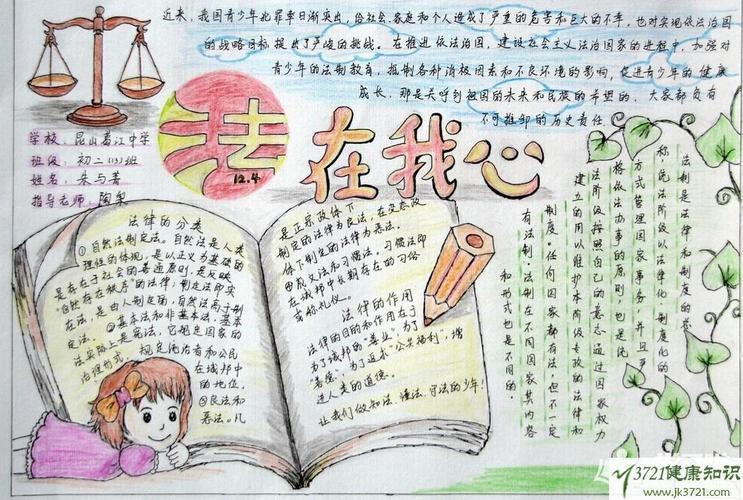 近来，我国青少年犯罪率日渐突出，给社会、家庭和个人造成了严重的危害和巨大的不幸，也对实现依法治国
的战略目标提出了严峻的挑战。在推进依法治国，建设社会主义法治国家的进程中，加强对
青少年的法制教育，抵制各种消极因素和不良环境的影响，促进青少年的健康
成长，那是关呼到祖国的未来和民族的希望的，大家都负有
不可推卸的历史责任
法在我心
12.4
学校：昆山葛江中学
班级：初二(13)班
姓名：朱与菁
指导老师：陶
法律的分类
①自然法制定法。自然法是人类
理性的体现，是以正义为基础的
是存在于社会的普通原则，是反映
“自然存在秩序”的法律；制定法即实
在法，是由人制定的，自然法高于制
定法。②基本法和非基本法。基本
法实际上是宪法，它规定国家的
治理形式，规定统治者和公民
在城邦中
的地位。
③良法和
恶法。凡
是正宗政体下
制定的法律为良法，在变态政
体下制定的法律为恶法。
④成文法和习惯法。习惯法即
在城邦中长期存在的习俗
或称礼仪。
法律的作用
法律的目的和作用在于
为了城邦的“善业”，为了
“善德”，为了近求“公共福利”，增
进人类的道德。
让我们做知法、懂法、守法的少年！
法制是法律和制度的总
称，统治阶级以法律化、制度化的
方式管理国家事务，并且严
格依法办事的原则，也是统
治阶级按照自己的意志通过国家权力
建立的用以维护本阶级专政的法律和
制度。任何国家都有法，但不一定
有法制。法制在不同国家其内容
和形式也是不同的。
3721健康知识
www.jk3721.com